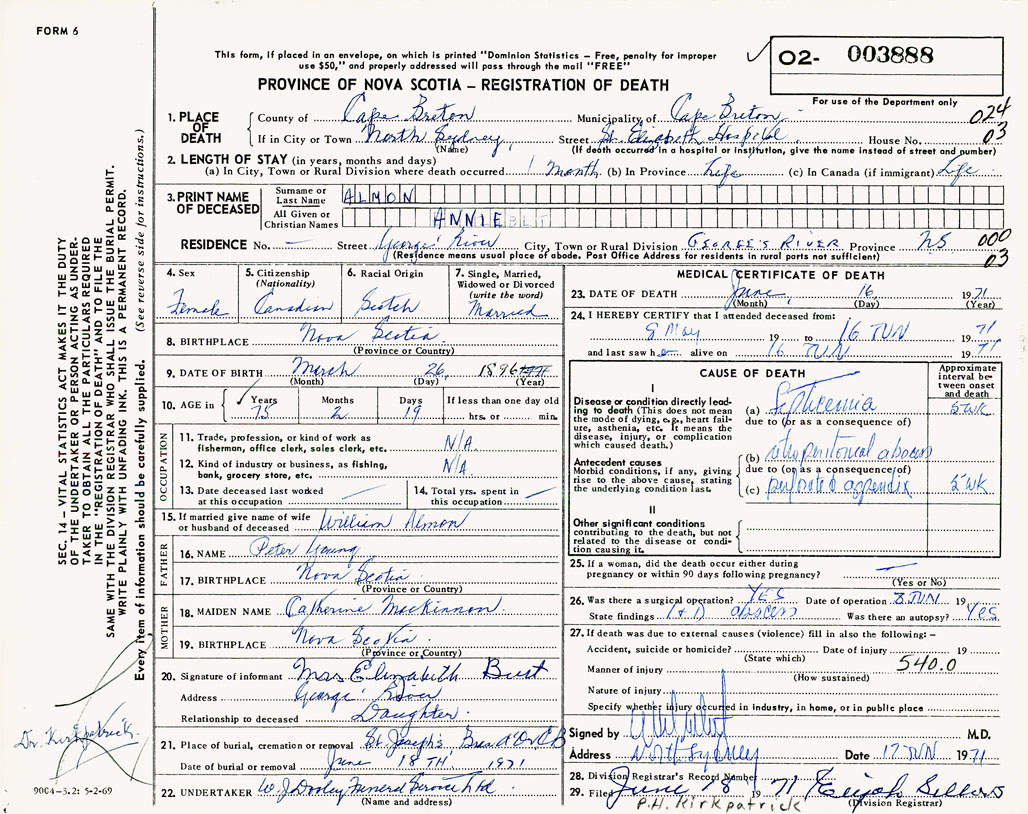 FORM 6
This form, if placed in an envelope, on which is printed "Dominion Statistics – Free, penalty for improper
use $50," and properly addressed will pass through the mail "FREE"
02- 003888
PROVINCE OF NOVA SCOTIA – REGISTRATION OF DEATH
For use of the Department only
1. PLACE OF DEATH
County of Cape Breton Municipality of Cape Breton 024
If in City or Town North Sydney, Street St. Elizabeth Hospital House No. 03
(Name) (If death occurred in a hospital or institution, give the name instead of street and number)
2. LENGTH OF STAY (in years, months and days)
(a) In City, Town or Rural Division where death occurred 1 Month (b) In Province Life (c) In Canada (if immigrant) Life
3. PRINT NAME OF DECEASED
Surname or Last Name ALMON
All Given or Christian Names ANNIE
RESIDENCE No. — Street George's River City, Town or Rural Division GEORGE'S RIVER Province NS 000
(Residence means usual place of abode. Post Office Address for residents in rural parts not sufficient) 03
4. Sex
Female
5. Citizenship
(Nationality)
Canadian
6. Racial Origin
Scotch
7. Single, Married,
Widowed or Divorced
(write the word)
Married
8. BIRTHPLACE Nova Scotia
(Province or Country)
9. DATE OF BIRTH March 26, 1896
(Month) (Day) (Year)
10. AGE in
Years Months Days If less than one day old
75 2 19 hrs. or min.
OCCUPATION
11. Trade, profession, or kind of work as
fisherman, office clerk, sales clerk, etc. N/A
12. Kind of industry or business, as fishing,
bank, grocery store, etc. N/A
13. Date deceased last worked
at this occupation
14. Total yrs. spent in
this occupation
15. If married give name of wife
or husband of deceased William Almon
FATHER
16. NAME Peter Young
17. BIRTHPLACE Nova Scotia
(Province or Country)
MOTHER
18. MAIDEN NAME Catherine MacKinnon
19. BIRTHPLACE Nova Scotia
(Province or Country)
20. Signature of informant Mrs Elizabeth
Address George's River
Relationship to deceased Daughter
21. Place of burial, cremation or removal St. Joseph's, Bras d'Or C B
Date of burial or removal June 18TH. 1971
22. UNDERTAKER W. J. Dooley Funeral Service Ltd
(Name and address)
MEDICAL CERTIFICATE OF DEATH
23. DATE OF DEATH June, 16 1971
(Month) (Day) (Year)
24. I HEREBY CERTIFY that I attended deceased from:
8 May 19 to 16 JUN 1971
and last saw h alive on 16 JUN 1971
CAUSE OF DEATH
Approximate
interval be-
tween onset
and death
I
Disease or condition directly lead-
ing to death (This does not mean
the mode of dying, e.g., heart fail-
ure, asthenia, etc. It means the
disease, injury, or complication
which caused death.)
(a) Septicemia 5 wk
due to (or as a consequence of)
Antecedent causes
Morbid conditions, if any, giving
rise to the above cause, stating
the underlying condition last.
(b) retroperitoneal abscess
due to (or as a consequence of)
(c) perforated appendix 5 wk
II
Other significant conditions
contributing to the death, but not
related to the disease or condi-
tion causing it.
25. If a woman, did the death occur either during
pregnancy or within 90 days following pregnancy?
(Yes or No)
26. Was there a surgical operation? YES Date of operation 8 JUN 19
State findings I + D abscess Was there an autopsy? YES
27. If death was due to external causes (violence) fill in also the following: –
Accident, suicide or homicide? Date of injury 19
(State which)
Manner of injury 540.0
(How sustained)
Nature of injury
Specify whether injury occurred in industry, in home, or in public place
Signed by M.D.
Address North Sydney Date 17 JUN 1971
28. Division Registrar's Record Number
29. Filed June 18 1971 Elijah Sellers
P.H. Kirkpatrick (Division Registrar)
SEC. 14 – VITAL STATISTICS ACT MAKES IT THE DUTY
OF THE UNDERTAKER OR PERSON ACTING AS UNDER-
TAKER TO OBTAIN ALL THE PARTICULARS REQUIRED
IN THE "REGISTRATION OF DEATH" AND TO FILE THE
SAME WITH THE DIVISION REGISTRAR WHO SHALL ISSUE THE BURIAL PERMIT.
WRITE PLAINLY WITH UNFADING INK. THIS IS A PERMANENT RECORD.
Every item of information should be carefully supplied. (See reverse side for instructions.)
Dr. Kirkpatrick.
9004-3.2: 5-2-69